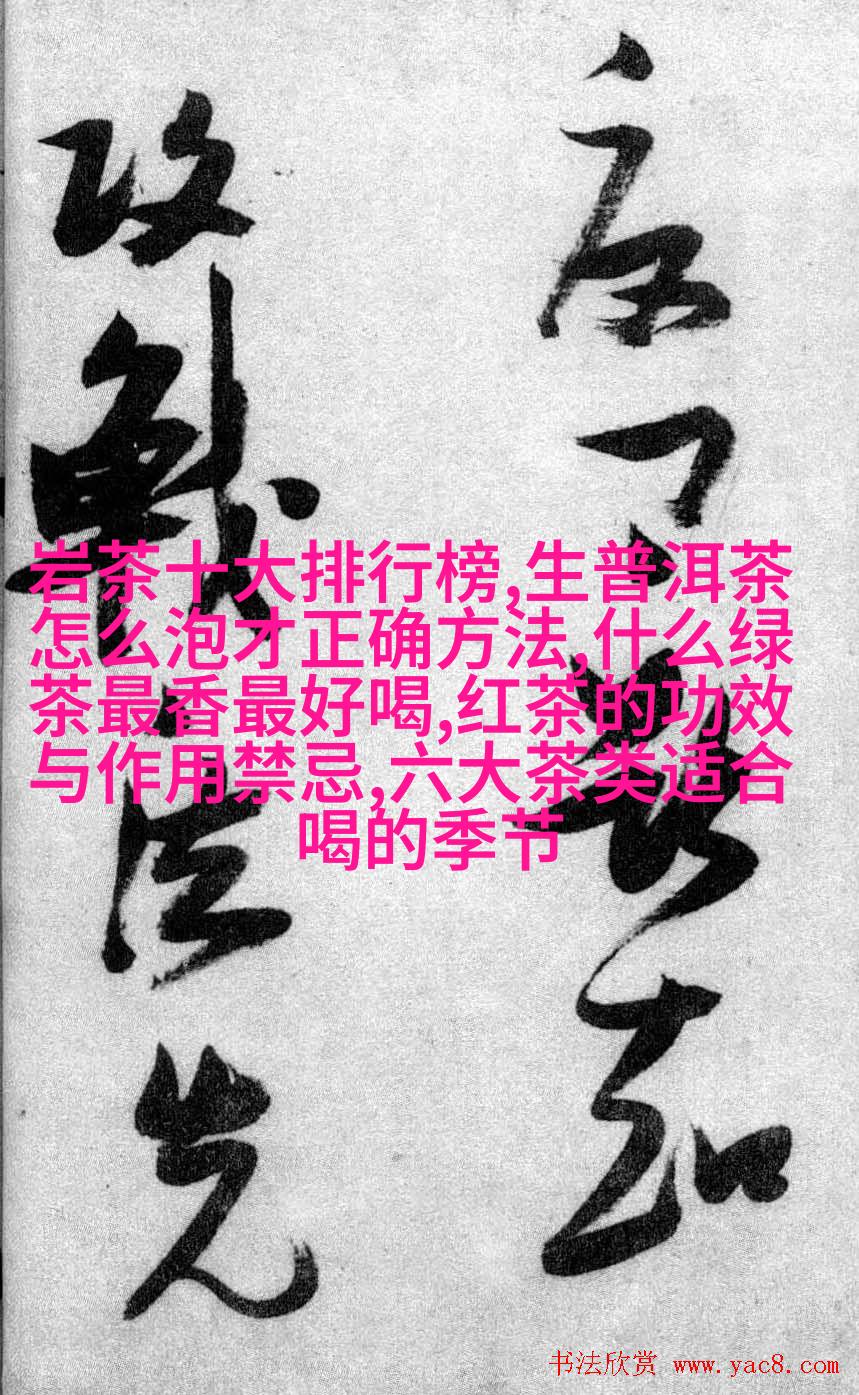 知
攻戰先
岩茶十大排行榜,生普洱茶
怎么泡才正确方法,什么绿
茶最香最好喝,红茶的功效
与作用禁忌,六大茶类适合
喝的季节
书法欣赏 www.yac8.com